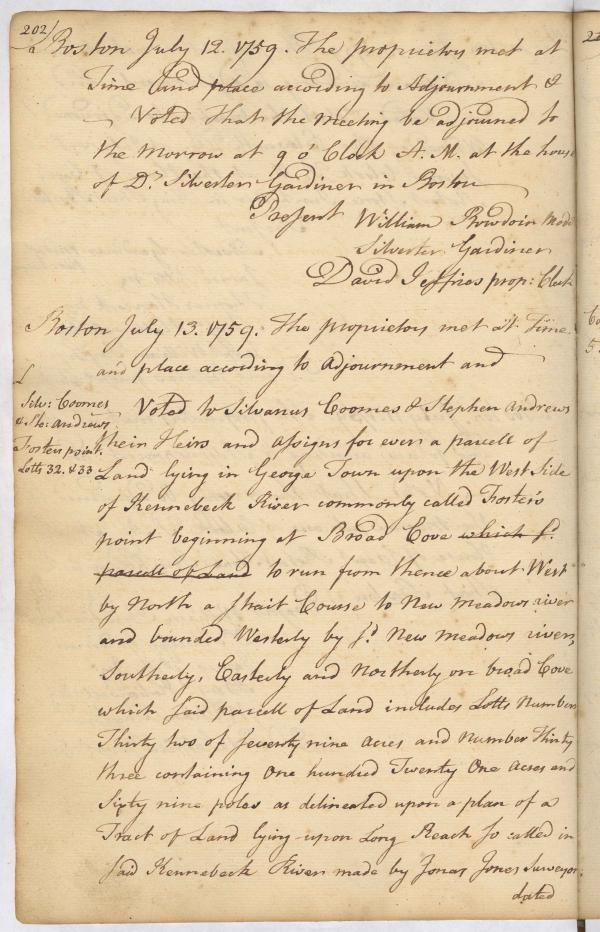 202/
Boston July 12. 1759. The proprietors met at
Time and place according to Adjournment &
Voted That the Meeting be adjourned to
the Morrow at 9 o' Clock A. M. at the house
of Dr. Silvester Gardiner in Boston
Present William Bowdoin Mode
Silvester Gardiner
David Jeffries prop: Clerk
Boston July 13. 1759. The proprietors met at Time
and place according to adjournment and
L
Silv: Coomes
& Ste: Andrews
Fosters point.
Lotts 32. & 33
Voted to Silvanus Coomes & Stephen Andrews
their Heirs and assigns for ever a parcell of
Land lying in George Town upon the West Side
of Kennebeck River commonly called Foster's
point beginning at Broad Cove which sd.
parcell of Land to run from thence about West
by North a strait Course to New meadows river
and bounded Westerly by sd. New meadows river,
Southerly, Easterly and Northerly on broad Cove
which said parcell of Land includes Lotts Number
Thirty two of seventy nine Acres and Number Thirty
three containing One hundred Twenty One Acres and
Sixty nine poles as delineated upon a plan of a
Tract of Land lying upon Long Reach so called in
said Kennebeck River made by Jonas Jones Surveyor
dated